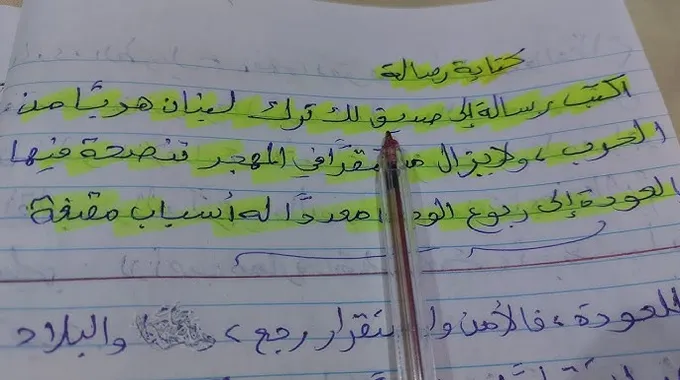 كتابة رسالة
اكتب رسالة إلى صديق لك ترك لبنان هربًا من
الحرب، ولا يزال في المهجر تنصحة فيها
العودة إلى ربوع معددًا له أسباب مقنعة
للعودة، فالأمن رجع، والبلاد